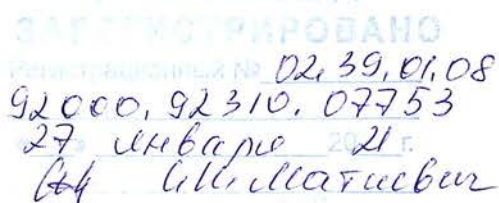 ЗАРЕГИСТРИРОВАНО
Регистрационный № 02.39.01.08
92000.92310.07753
«27» января 2021 г.
Матиевич